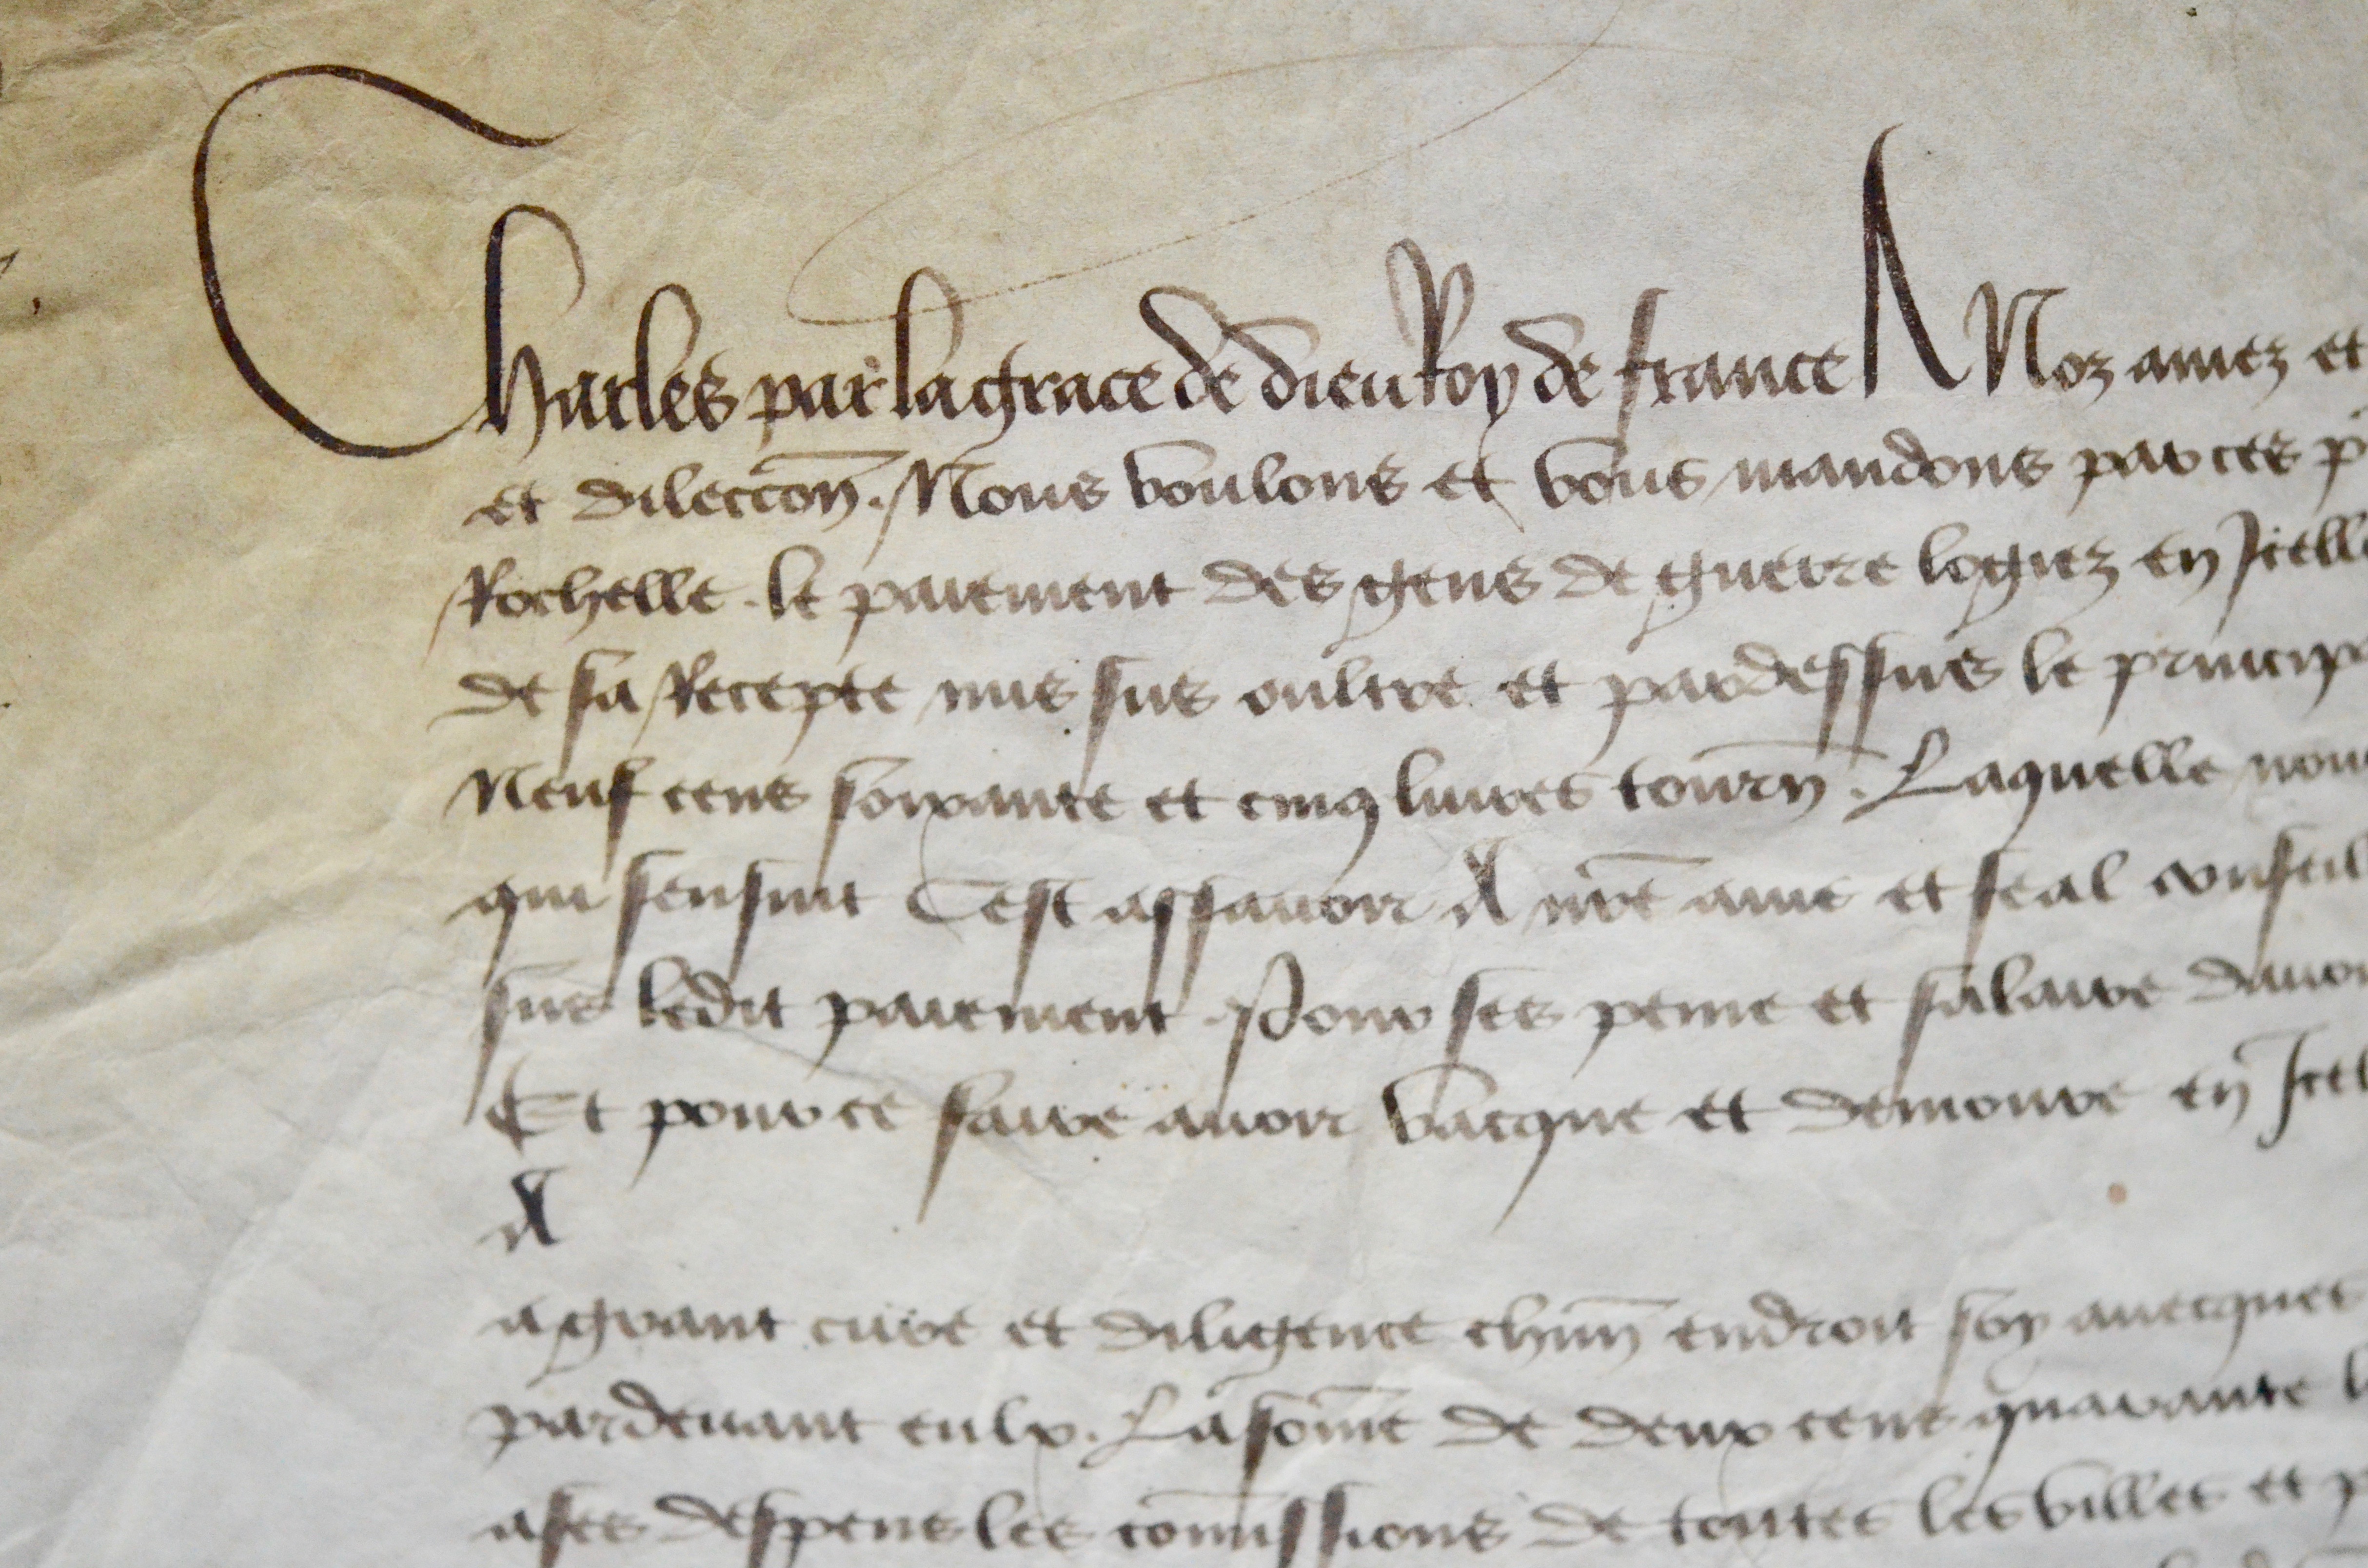 Charles par la grace de dieu Roy de france A Noz amez et
et dilection. Nous voulons et vous mandons par ces p
Rochelle. le paiement des gens de guerre logiez en Icelle
de sa Recepte mis sus oultre et pardessus le princip
Neuf cens soixante et cinq livres tourn. Laquelle nou
qui sensuit Cest assavoir A nre ame et feal conseil
sur ledit paiement. Pour ses peine et salaire davoi
Et pour ce faire avoir vacque et demoure en Icel
A
a grant cure et diligence chun endroit soy avecques
pardevant eulx. La somme de deux cens quarante l
a ses despens les commissions de toutes les villes et p